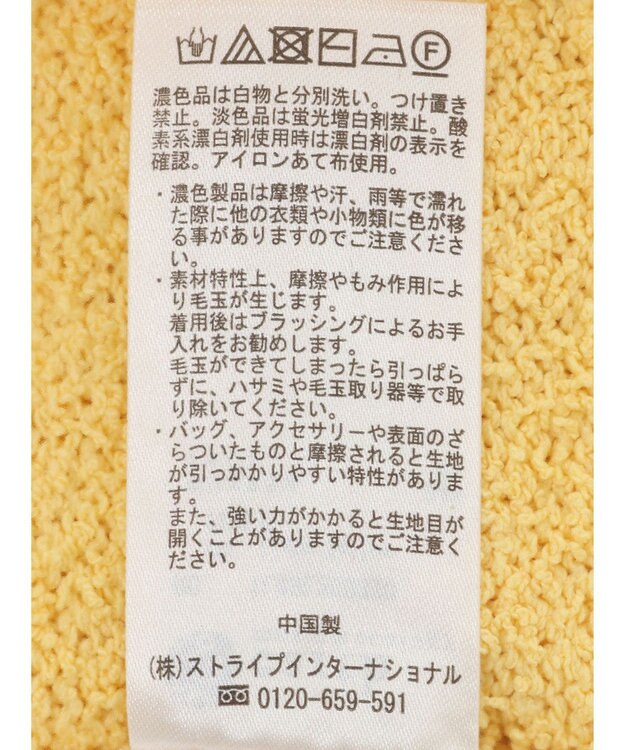 F
濃色品は白物と分別洗い。つけ置き
禁止。淡色品は蛍光増白剤禁止。酸
素系漂白剤使用時は漂白剤の表示を
確認。アイロンあて布使用。
・濃色製品は摩擦や汗、雨等で濡れ
た際に他の衣類や小物類に色が移
る事がありますのでご注意くださ
い。
・素材特性上、摩擦やもみ作用によ
り毛玉が生じます。
着用後はブラッシングによるお手
入れをお勧めします。
毛玉ができてしまったら引っぱら
ずに、ハサミや毛玉取り器等で取
り除いてください。
・バッグ、アクセサリーや表面のざ
らついたものと摩擦されると生地
が引っかかりやすい特性がありま
す。
また、強い力がかかると生地目が
開くことがありますのでご注意く
ださい。
中国製
(株)ストライプインターナショナル
0120-659-591